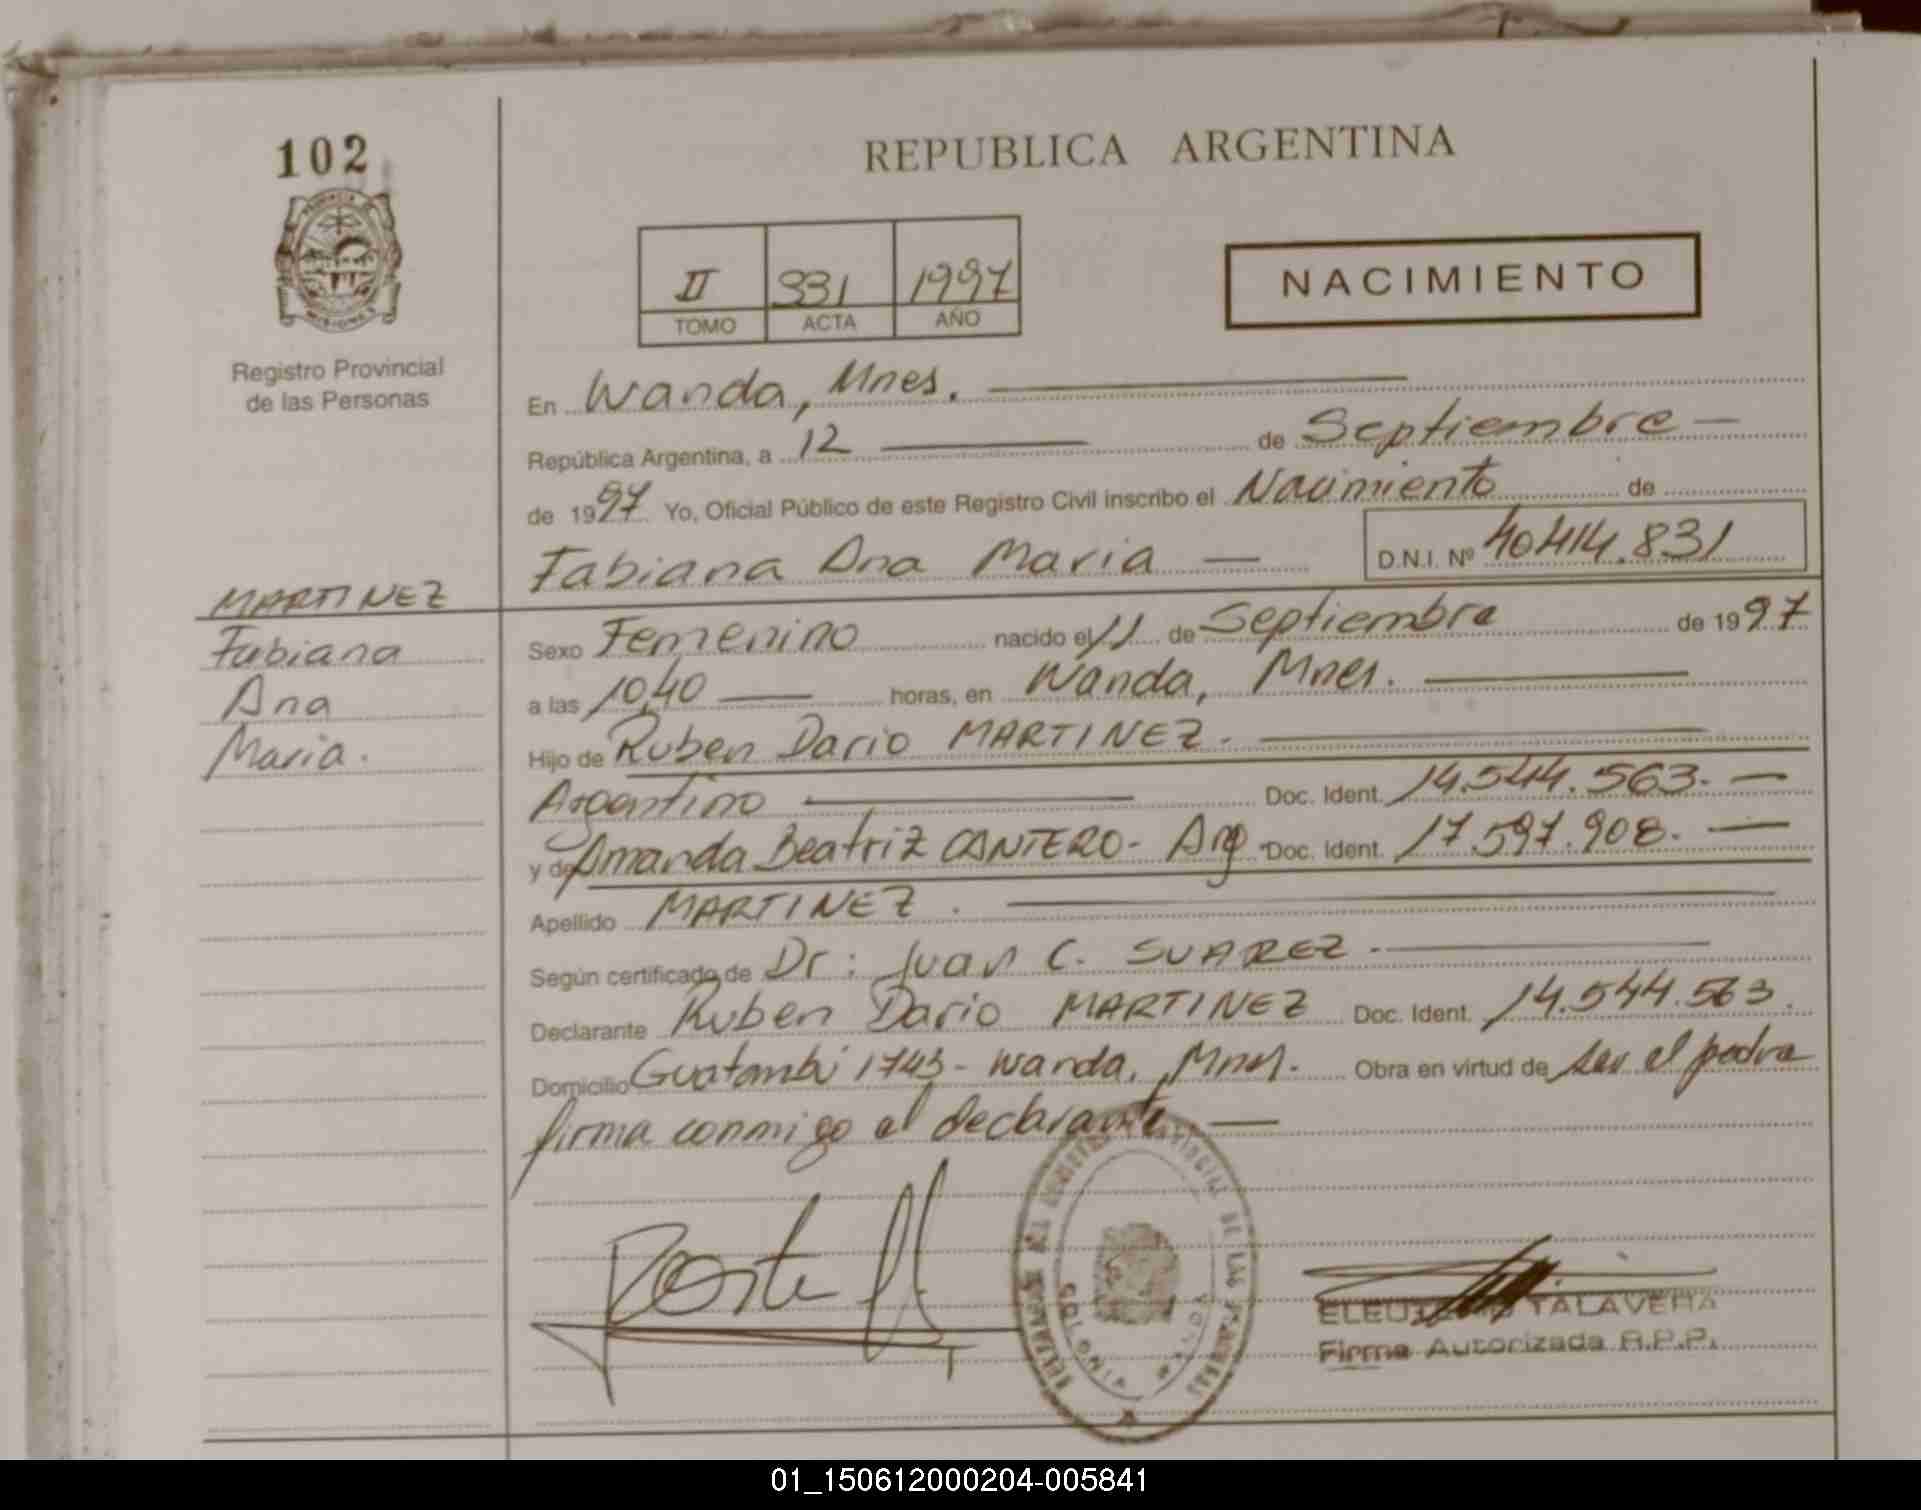 102
REPUBLICA ARGENTINA
PROVINCIA DE
MISIONES
Registro Provincial
de las Personas
II 331 1997
TOMO ACTA AÑO
NACIMIENTO
En Wanda, Mnes.
República Argentina, a 12 de Septiembre
de 1997 Yo, Oficial Público de este Registro Civil inscribo el Nacimiento de
Fabiana Ana Maria D.N.I. Nº 40414.831
MARTINEZ
Fabiana
Ana
Maria.
Sexo Femenino nacido el 11 de Septiembre de 1997
a las 10,40 horas, en Wanda, Mnes.
Hijo de Ruben Dario MARTINEZ.
Argentino Doc. Ident. 14.544.563.
y de Amanda Beatriz CANTERO- Arg. Doc. Ident. 17.597.908.
Apellido MARTINEZ.
Según certificado de Dr: Juan C. SUAREZ
Declarante Ruben Dario MARTINEZ Doc. Ident. 14.544.563.
Domicilio Guatambú 1743- Wanda, Mnes. Obra en virtud de ser el padre
firma conmigo el declarante
PROVINCIAL DE LAS
COLONIA WANDA
TALAVERA
Firma Autorizada R.P.P.
01_150612000204-005841